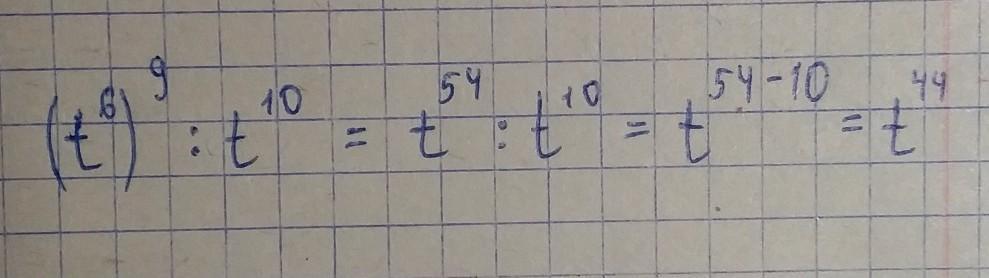 (t⁶)⁹ : t¹⁰ = t⁵⁴ : t¹⁰ = t⁵⁴⁻¹⁰ = t⁴⁴